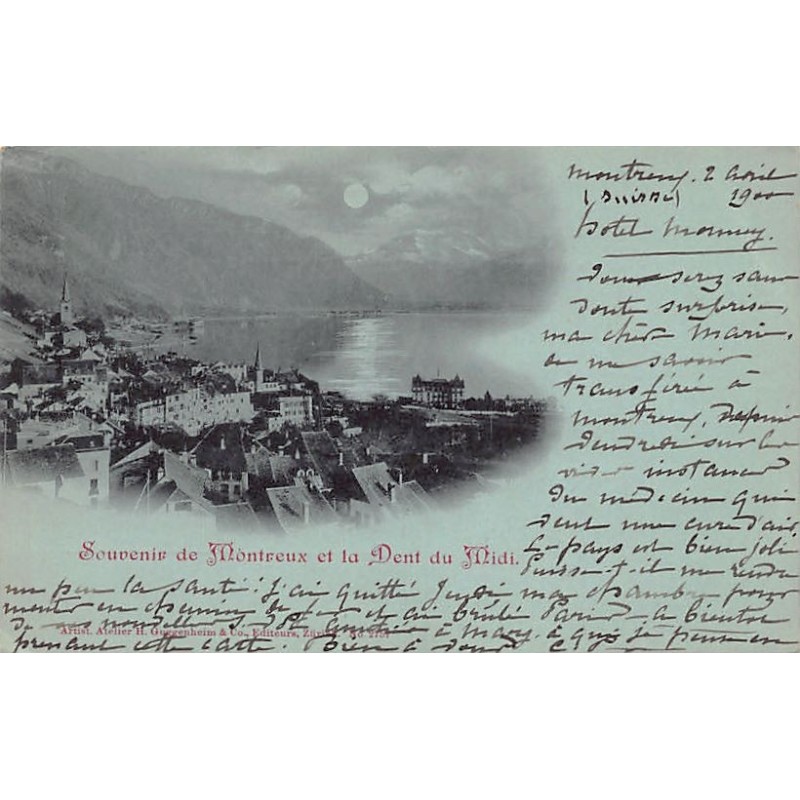 Montreux. 2 Avril
(Suisse) 1900
Hotel Monney.
Vous serez sans
doute surprise,
ma chère Marie,
de me savoir
transférée à
Montreux, depuis
Vendredi sur les
vives instances
du médecin qui
veut une cure d'air.
Le pays est bien joli
Puisse-t-il me rendre
Souvenir de Montreux et la Dent du Midi.
un peu la santé! J'ai quitté Jeudi ma chambre pour
monter en chemin de fer et ai brûlé Paris. A bientôt
de vos nouvelles à Mary. à qui je pense en
Artist. Atelier H. Guggenheim & Co., Editeurs, Zürich. No.
prenant cette carte. Bien à vous